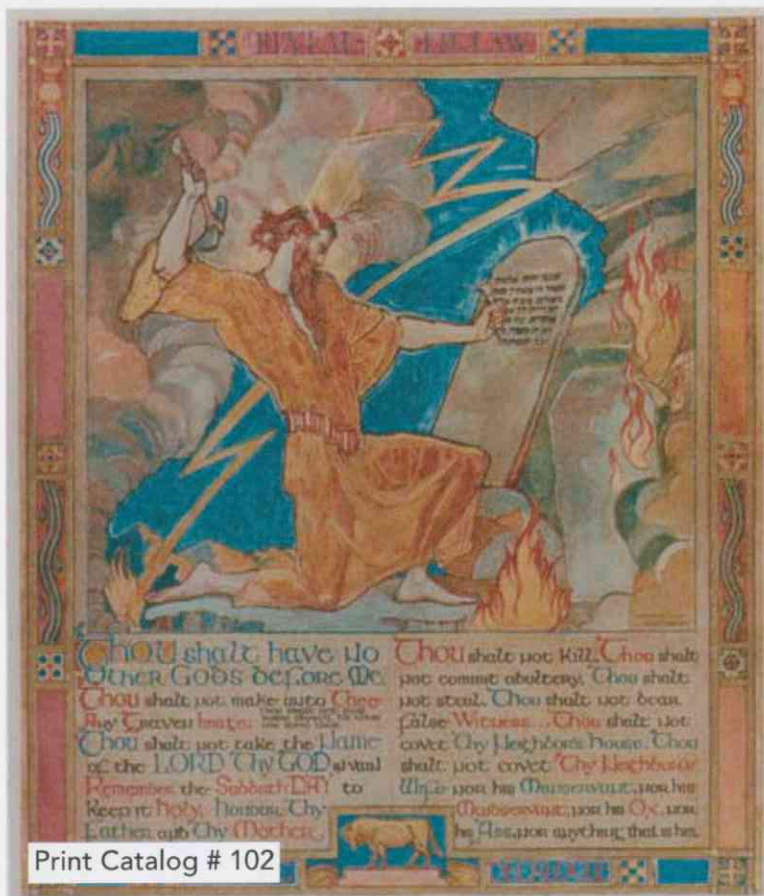 DIVINE LAW
THOU shalt have No
Other Gods before Me.
Thou shalt not make unto Thee
Any Graven Image
Thou shalt not take the Name
of the LORD Thy GOD in vain
Remember the Sabbath DAY to
Keep it Holy. Honour Thy
Father and Thy Mother.
Thou shalt not Kill. Thou shalt
not commit adultery. Thou shalt
not steal. Thou shalt not bear
false Witness... Thou shalt not
covet Thy Neighbor's House. Thou
shalt not covet Thy Neighbor's
Wife nor his Manservant, nor his
Maidservant, nor his Ox, nor
his Ass, nor anything that is his.
Print Catalog # 102